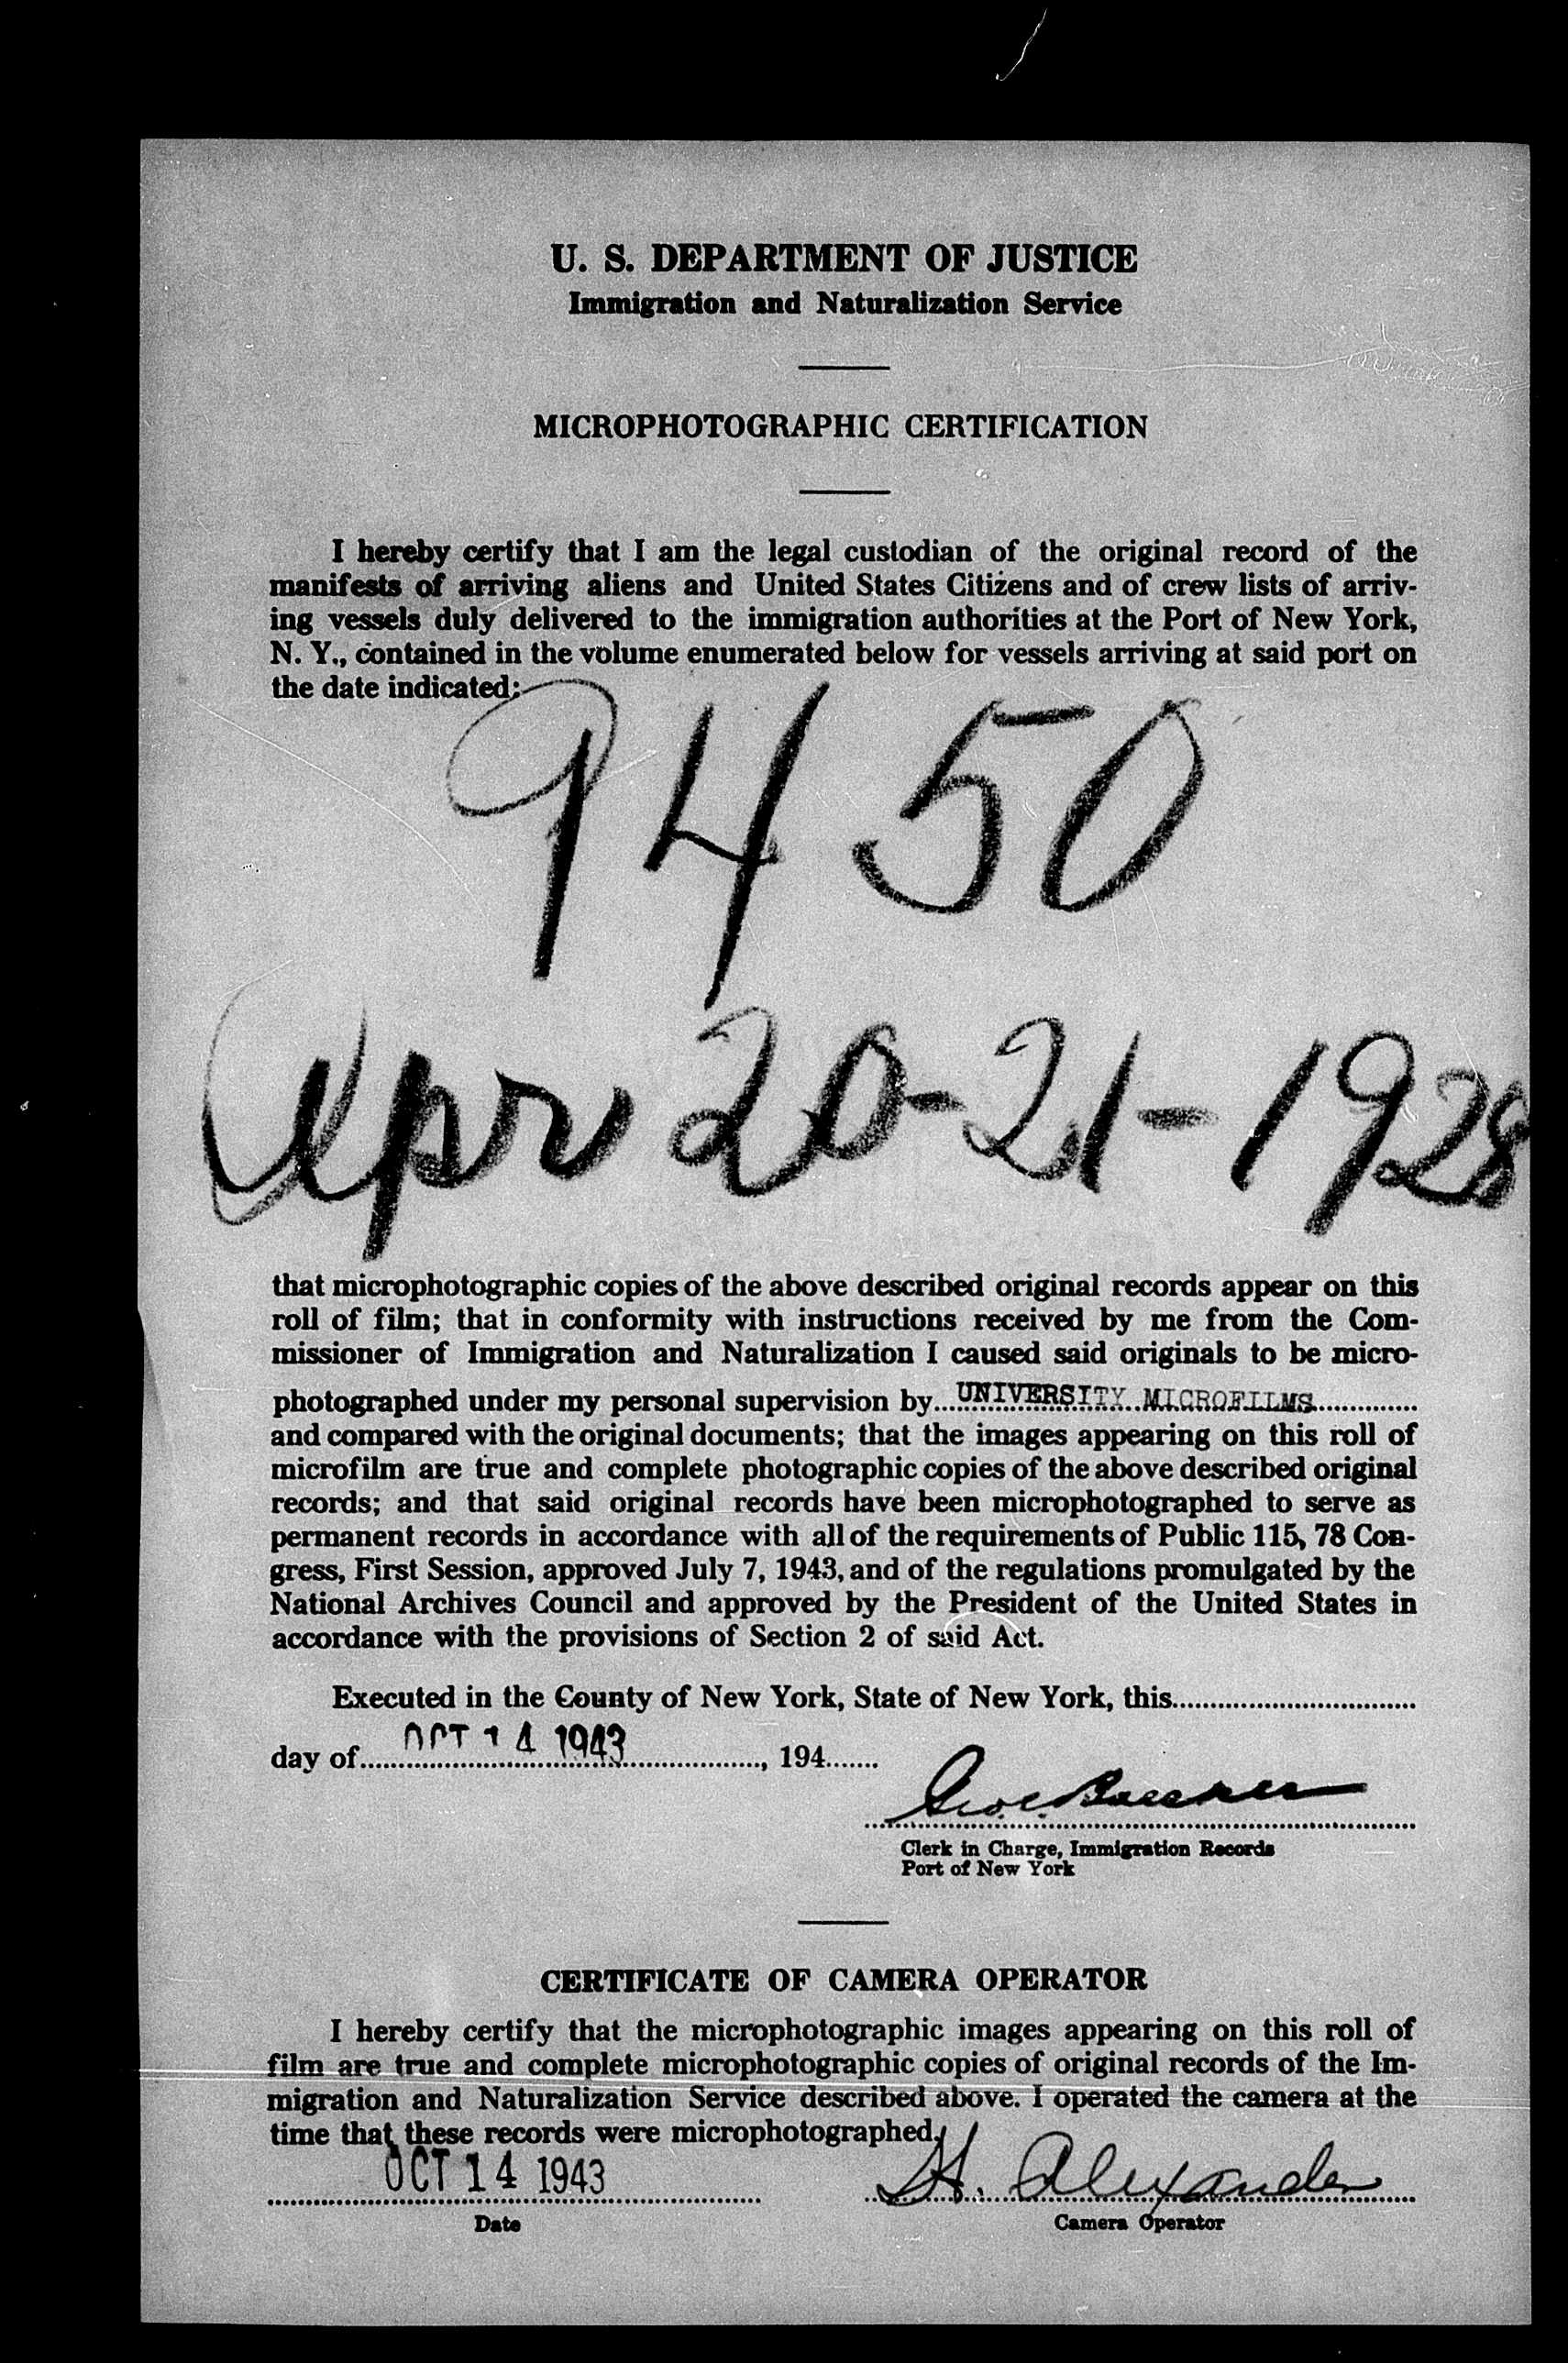 U. S. DEPARTMENT OF JUSTICE
Immigration and Naturalization Service
MICROPHOTOGRAPHIC CERTIFICATION
I hereby certify that I am the legal custodian of the original record of the
manifests of arriving aliens and United States Citizens and of crew lists of arriv-
ing vessels duly delivered to the immigration authorities at the Port of New York,
N. Y., contained in the volume enumerated below for vessels arriving at said port on
the date indicated:
9450
Apr 20-21-1928
that microphotographic copies of the above described original records appear on this
roll of film; that in conformity with instructions received by me from the Com-
missioner of Immigration and Naturalization I caused said originals to be micro-
photographed under my personal supervision by....UNIVERSITY MICROFILMS..............
and compared with the original documents; that the images appearing on this roll of
microfilm are true and complete photographic copies of the above described original
records; and that said original records have been microphotographed to serve as
permanent records in accordance with all of the requirements of Public 115, 78 Con-
gress, First Session, approved July 7, 1943, and of the regulations promulgated by the
National Archives Council and approved by the President of the United States in
accordance with the provisions of Section 2 of said Act.
Executed in the County of New York, State of New York, this................................
day of.....OCT 14 1943.................., 194.......
Geo. C.
Clerk in Charge, Immigration Records
Port of New York
CERTIFICATE OF CAMERA OPERATOR
I hereby certify that the microphotographic images appearing on this roll of
film are true and complete microphotographic copies of original records of the Im-
migration and Naturalization Service described above. I operated the camera at the
time that these records were microphotographed.
OCT 14 1943 H. Alexander
Date Camera Operator